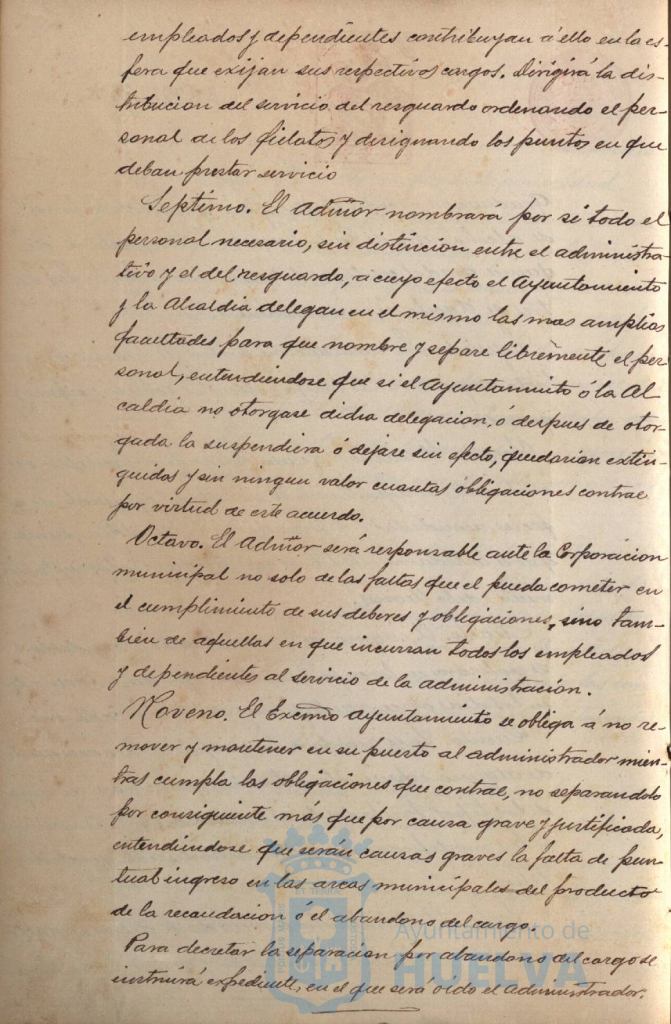 empleados y dependientes contribuyan á ello en la es-
fera que exijan sus respectivos cargos. Dirigirá la dis-
tribucion del servicio del resguardo ordenando el per-
sonal de los fielatos y designando los puntos en que
deban prestar servicio
Septimo. El Admor nombrará por si todo el
personal necesario, sin distincion entre el administra-
tivo y el del resguardo, a cuyo efecto el Ayuntamiento
y la Alcaldia delegan en el mismo las mas amplias
facultades para que nombre y separe libremente el per-
sonal, entendiendose que si el Ayuntamiento ó la Al
caldia no otorgase dicha delegacion, ó despues de otor-
gada la suspendiera ó dejase sin efecto, quedarian extin-
guidas y sin ningun valor cuantas obligaciones contrae
por virtud de este acuerdo.
Octavo. El Admor será responsable ante la Corporacion
municipal no solo de las faltas que el pueda cometer en
el cumplimiento de sus deberes y obligaciones, sino tam-
bien de aquellas en que incurran todos los empleados
y dependientes al servicio de la administración.
Noveno. El Excmo Ayuntamiento se obliga á no re-
mover y mantener en su puesto al administrador mien-
tras cumpla las obligaciones que contrae, no separandolo
por consiguiente más que por causa grave y justificada,
entendiendose que serán causas graves la falta de pun-
tual ingreso en las arcas municipales del producto
de la recaudacion ó el abandono del cargo.
Para decretar la separacion por abandono del cargo se
instruirá expediente, en el que será oido el Administrador.
Ayuntamiento de
HUELVA